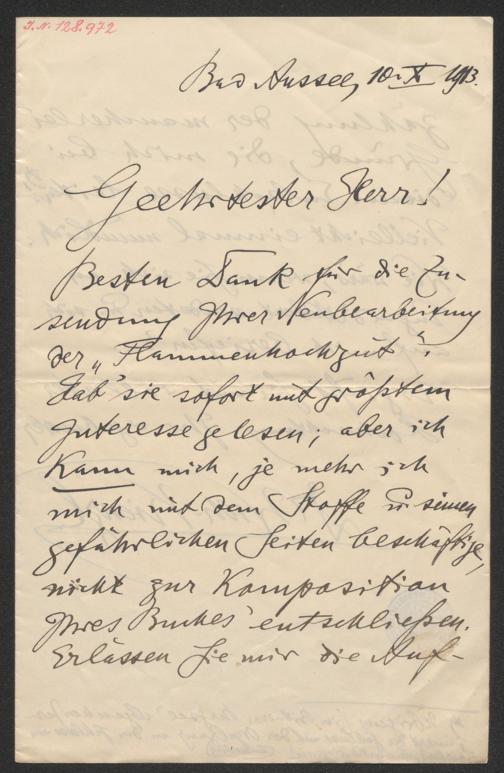 I.N. 128.972
Bad Aussee, 10. X 1913.
Geehrtester Herr!
Besten Dank für die Zu-
sendung Ihrer Neubearbeitung
der „Flammenhochzeit“.
Hab' sie sofort mit größtem
Interesse gelesen; aber ich
kann mich, je mehr ich
mich mit dem Stoffe u. seinen
gefährlichen Seiten beschäftige,
nicht zur Komposition
Ihres Buches entschließen.
Erlassen Sie mir die Auf-